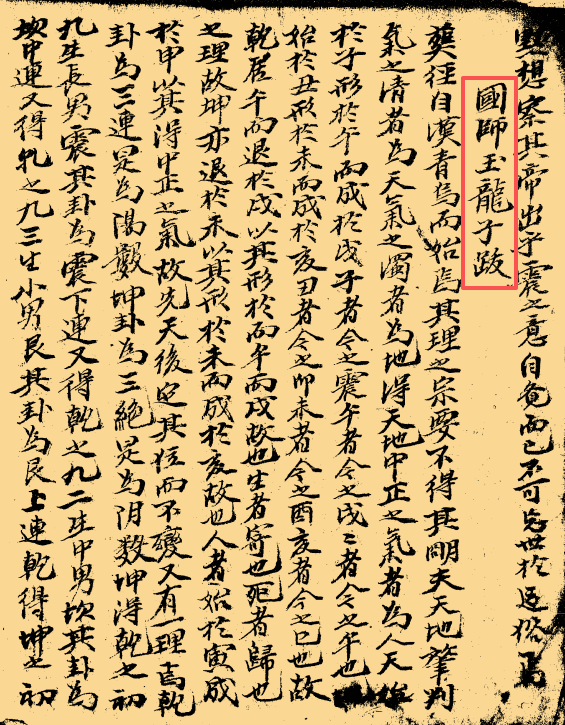 想察其帝出乎震之意自飽而已不可
國師玉龍子跋
葬徑自漢青烏而始焉其理之宗要不得其明夫天地肇判
氣之清者為天氣之濁者為地得天地中正之氣者為人天
於子形於午而成於戌子者今之震午者今之戌戌者今之午也
始於丑形於未而成於亥丑者今之卯未者今之酉亥者今之巳也故
乾居午而退於戌以其形於而午而戌故也生者寄也死者歸也
之理故坤亦退於未以其形於未而成於亥故也人者始於寅成
於甲以其得中正之氣故先天後定其位而不變又有一理焉乾
卦為三連是為陽數坤卦為三絕是為阴数坤得乾之初
九生長男震其卦為震下連又得乾之九二生中男坎其卦為
坎中連又得乳之九三生小男艮其卦為艮上連乾得坤之初